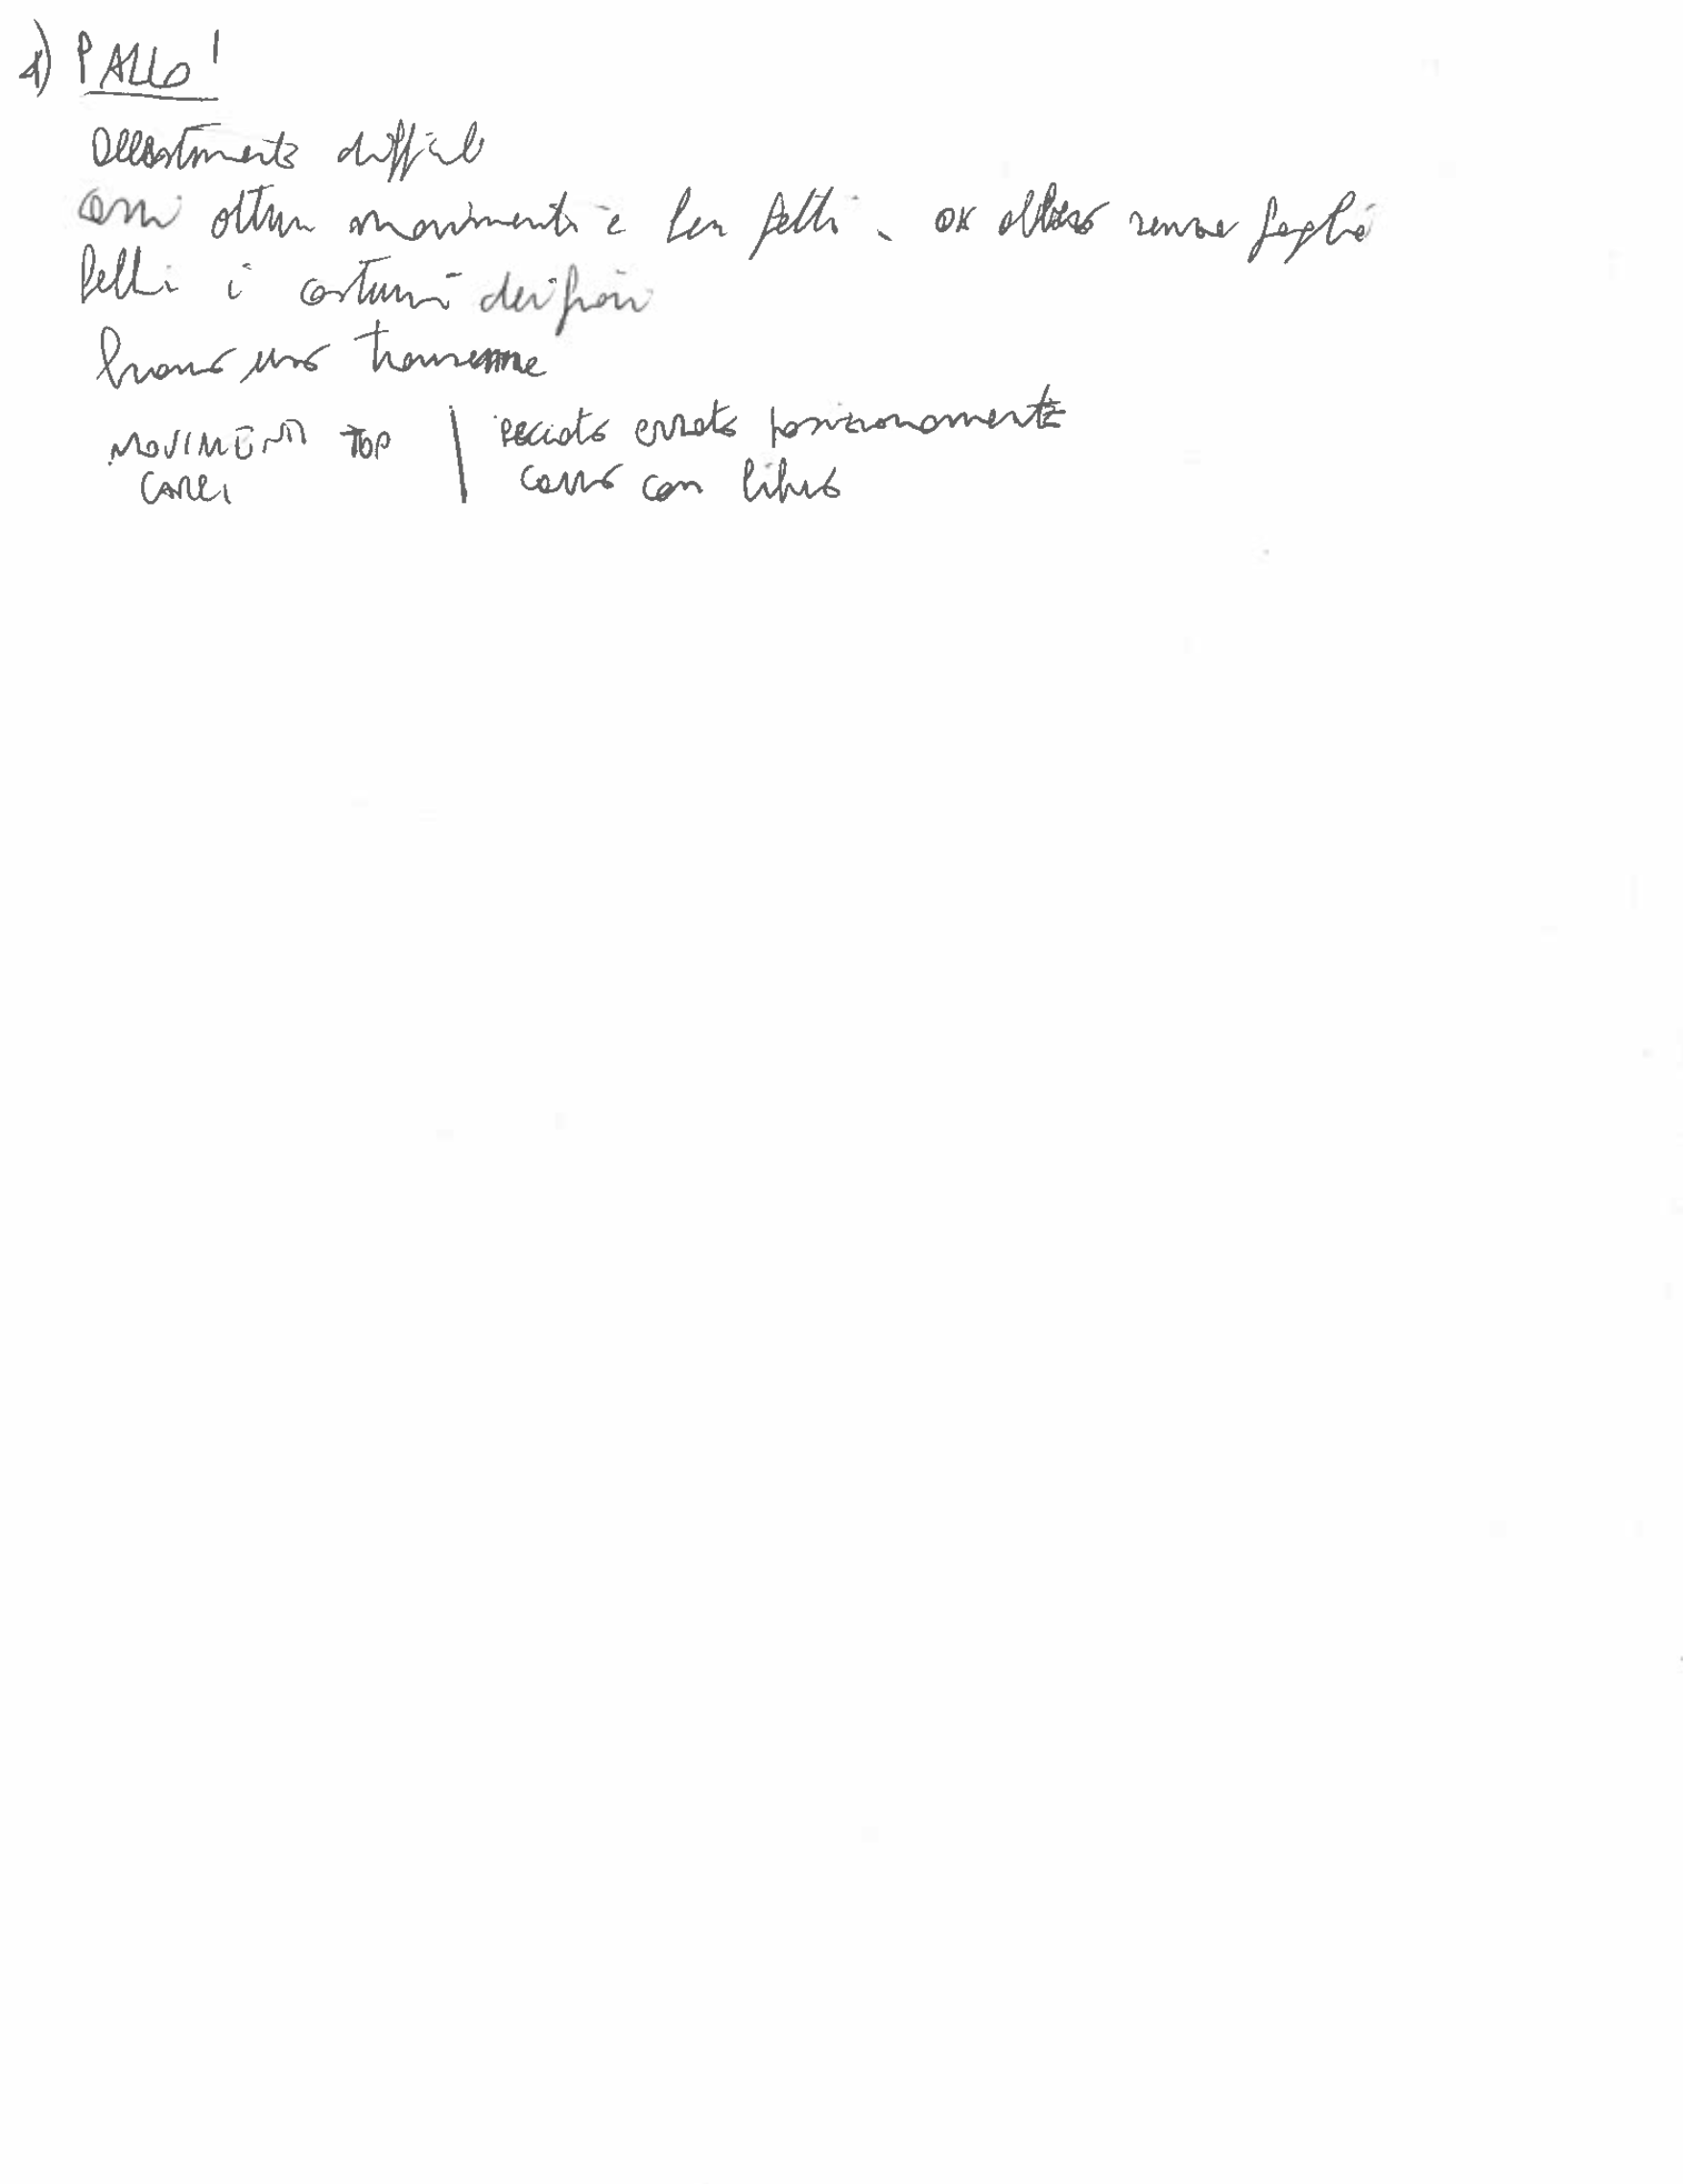 1) PALLO'
Allestimento difficile
Carri ottimi movimenti e ben fatti, ok albero senza foglie
Belli i costumi dei fiori
hanno una transenne
MOVIMENTI TOP | peccato errato posizionamento
CARRI | carro con libro